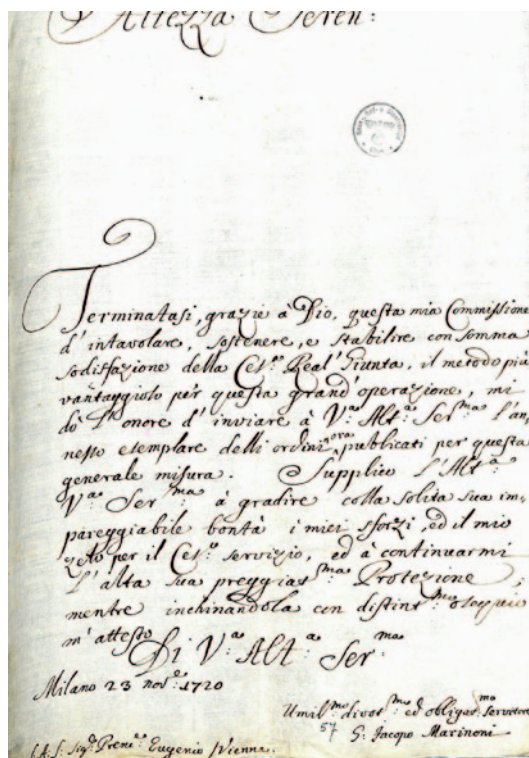 Altezza Seren:
Terminatasi, grazie à Dio, questa mia Commissione
d'intavolare, sostenere, e stabilire con somma
sodisfazione della Ces.ᵃ Real Giunta, il metodo più
vantaggioso per questa grand'operazione, mi
dò l'onore d'inviare à V.ᵃ Alt.ᵃ Ser.ᵐᵃ l'an,
nesso esemplare delli ordini ora pubblicati per questa
generale misura. Supplico l'Alt.ᵃ
V.ᵃ Ser.ᵐᵃ à gradire colla solita sua im,
pareggiabile bontà i miei sforzi, ed il mio
zelo per il Ces.º servizio, ed à continuarmi
l'alta sua preggias.ᵐᵃ Protezione,
mentre inchinandola con distint.ᵐᵒ ossequio
m'attesto
Di V.ᵃ Alt.ᵃ Ser.ᵐᵃ
Milano 23 nov.ᵉ 1720
Umil.ᵐᵒ divot.ᵐᵒ ed obligat.ᵐᵒ Servitore
57 G: Jacopo Marinoni
Eugenio Vienna.